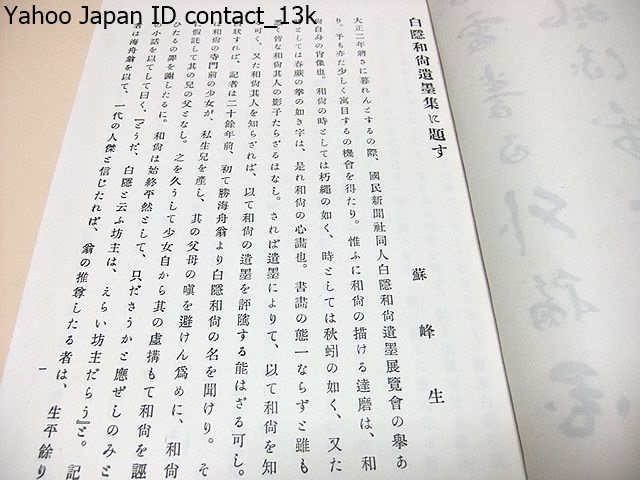 Yahoo Japan ID contact_13k
白隱和尙遺墨集に題す
蘇峰生
大正二年將さに暮れんとするの際、國民新聞社同人白隱和尙遺墨展覽會の擧あ
り。予も亦た少しく寓目するの機會を得たり。惟ふに和尙の描ける達磨は、和
尙自身の肖像也。和尙の時としては朽繩の如く、時としては秋蚓の如く、又た
時としては春蕨の拳の如き字は、是れ和尙の心畵也。書畵の態一ならずと雖も
悉く皆な和尙其人の影子たらざるはなし。されば遺墨によりて、以て和尙を知
可く、又た和尙其人を知らざれば、以て和尙の遺墨を評隲する能はざる可し。
白狀すれば、記者は二十餘年前、初て勝海舟翁より白隱和尙の名を聞けり。そ
は和尙の寺門前の少女が、私生兒を產し、其の父母の嗔を避けん爲めに、和尙
に假託して其の兒の父となし。之を久うして少女自から其の虛構もて和尙を誣
ひたるの罪を謝したるに。和尙は始終平然として、只ださうかと應ぜしのみと
の小話を以てして曰く、『どうだ、白隱と云ふ坊主は、えらい坊主だらう』と。記
者は海舟翁を以て、一代の人傑と信じたれば、翁の推尊したる者は、生平餘り
一